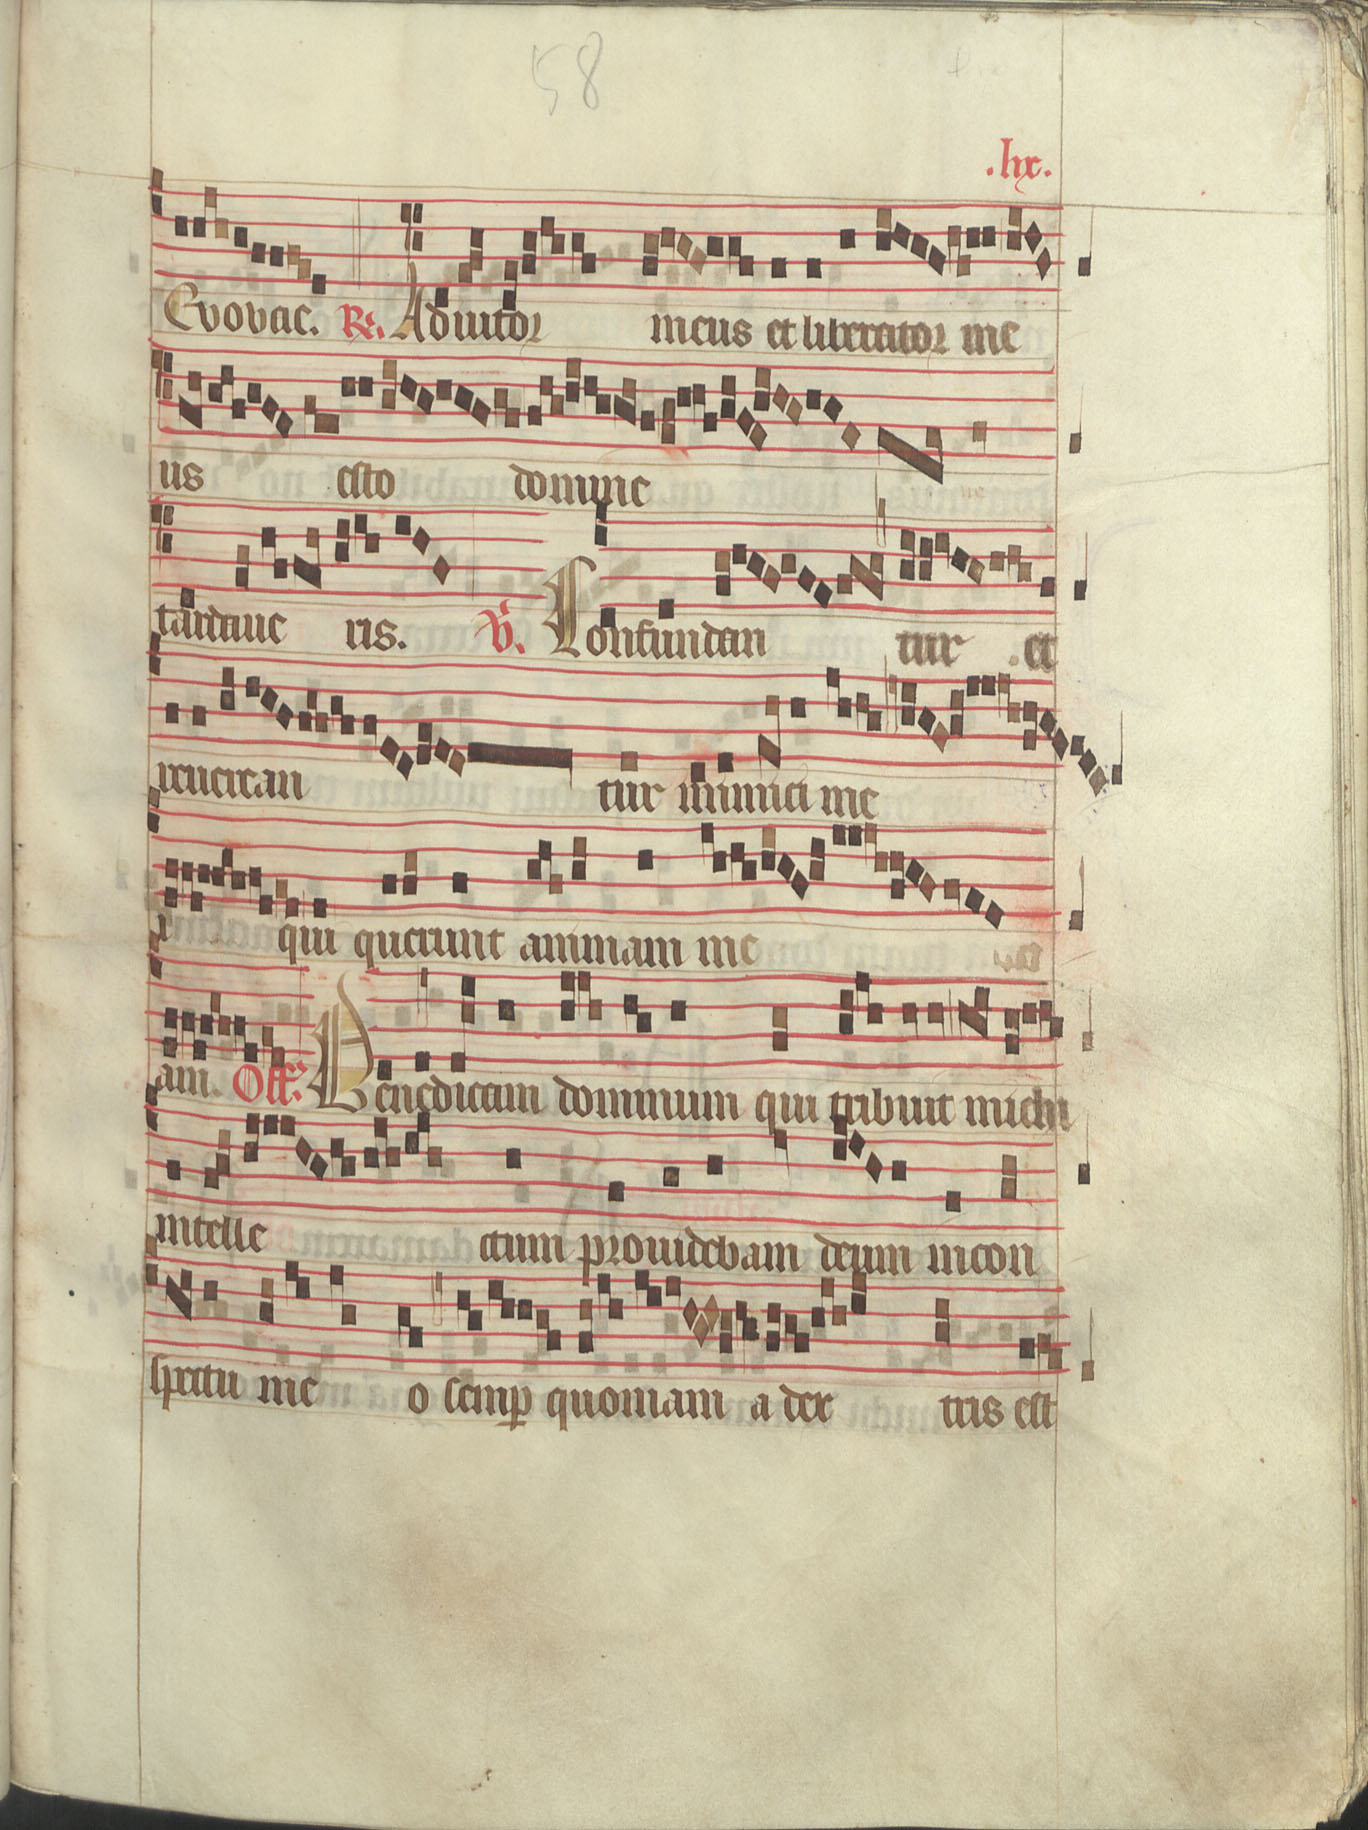 58
.lx.
Evovae. R. Adiutor meus et liberator me
us esto domine ne
tardaue ris. V. Confundan tur .et
reuerean tur inimici me
i qui querunt animam me
am. Off. Benedicam dominum qui tribuit michi
intelle ctum prouidebam deum incon
spectu me o semp quoniam a dex tris est